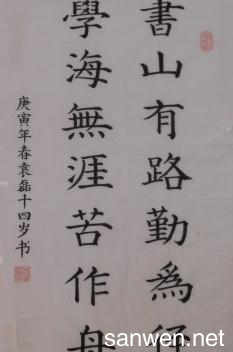 書山有路勤為
學海無涯苦作舟
庚寅年春袁磊十四岁书
sanwen.net